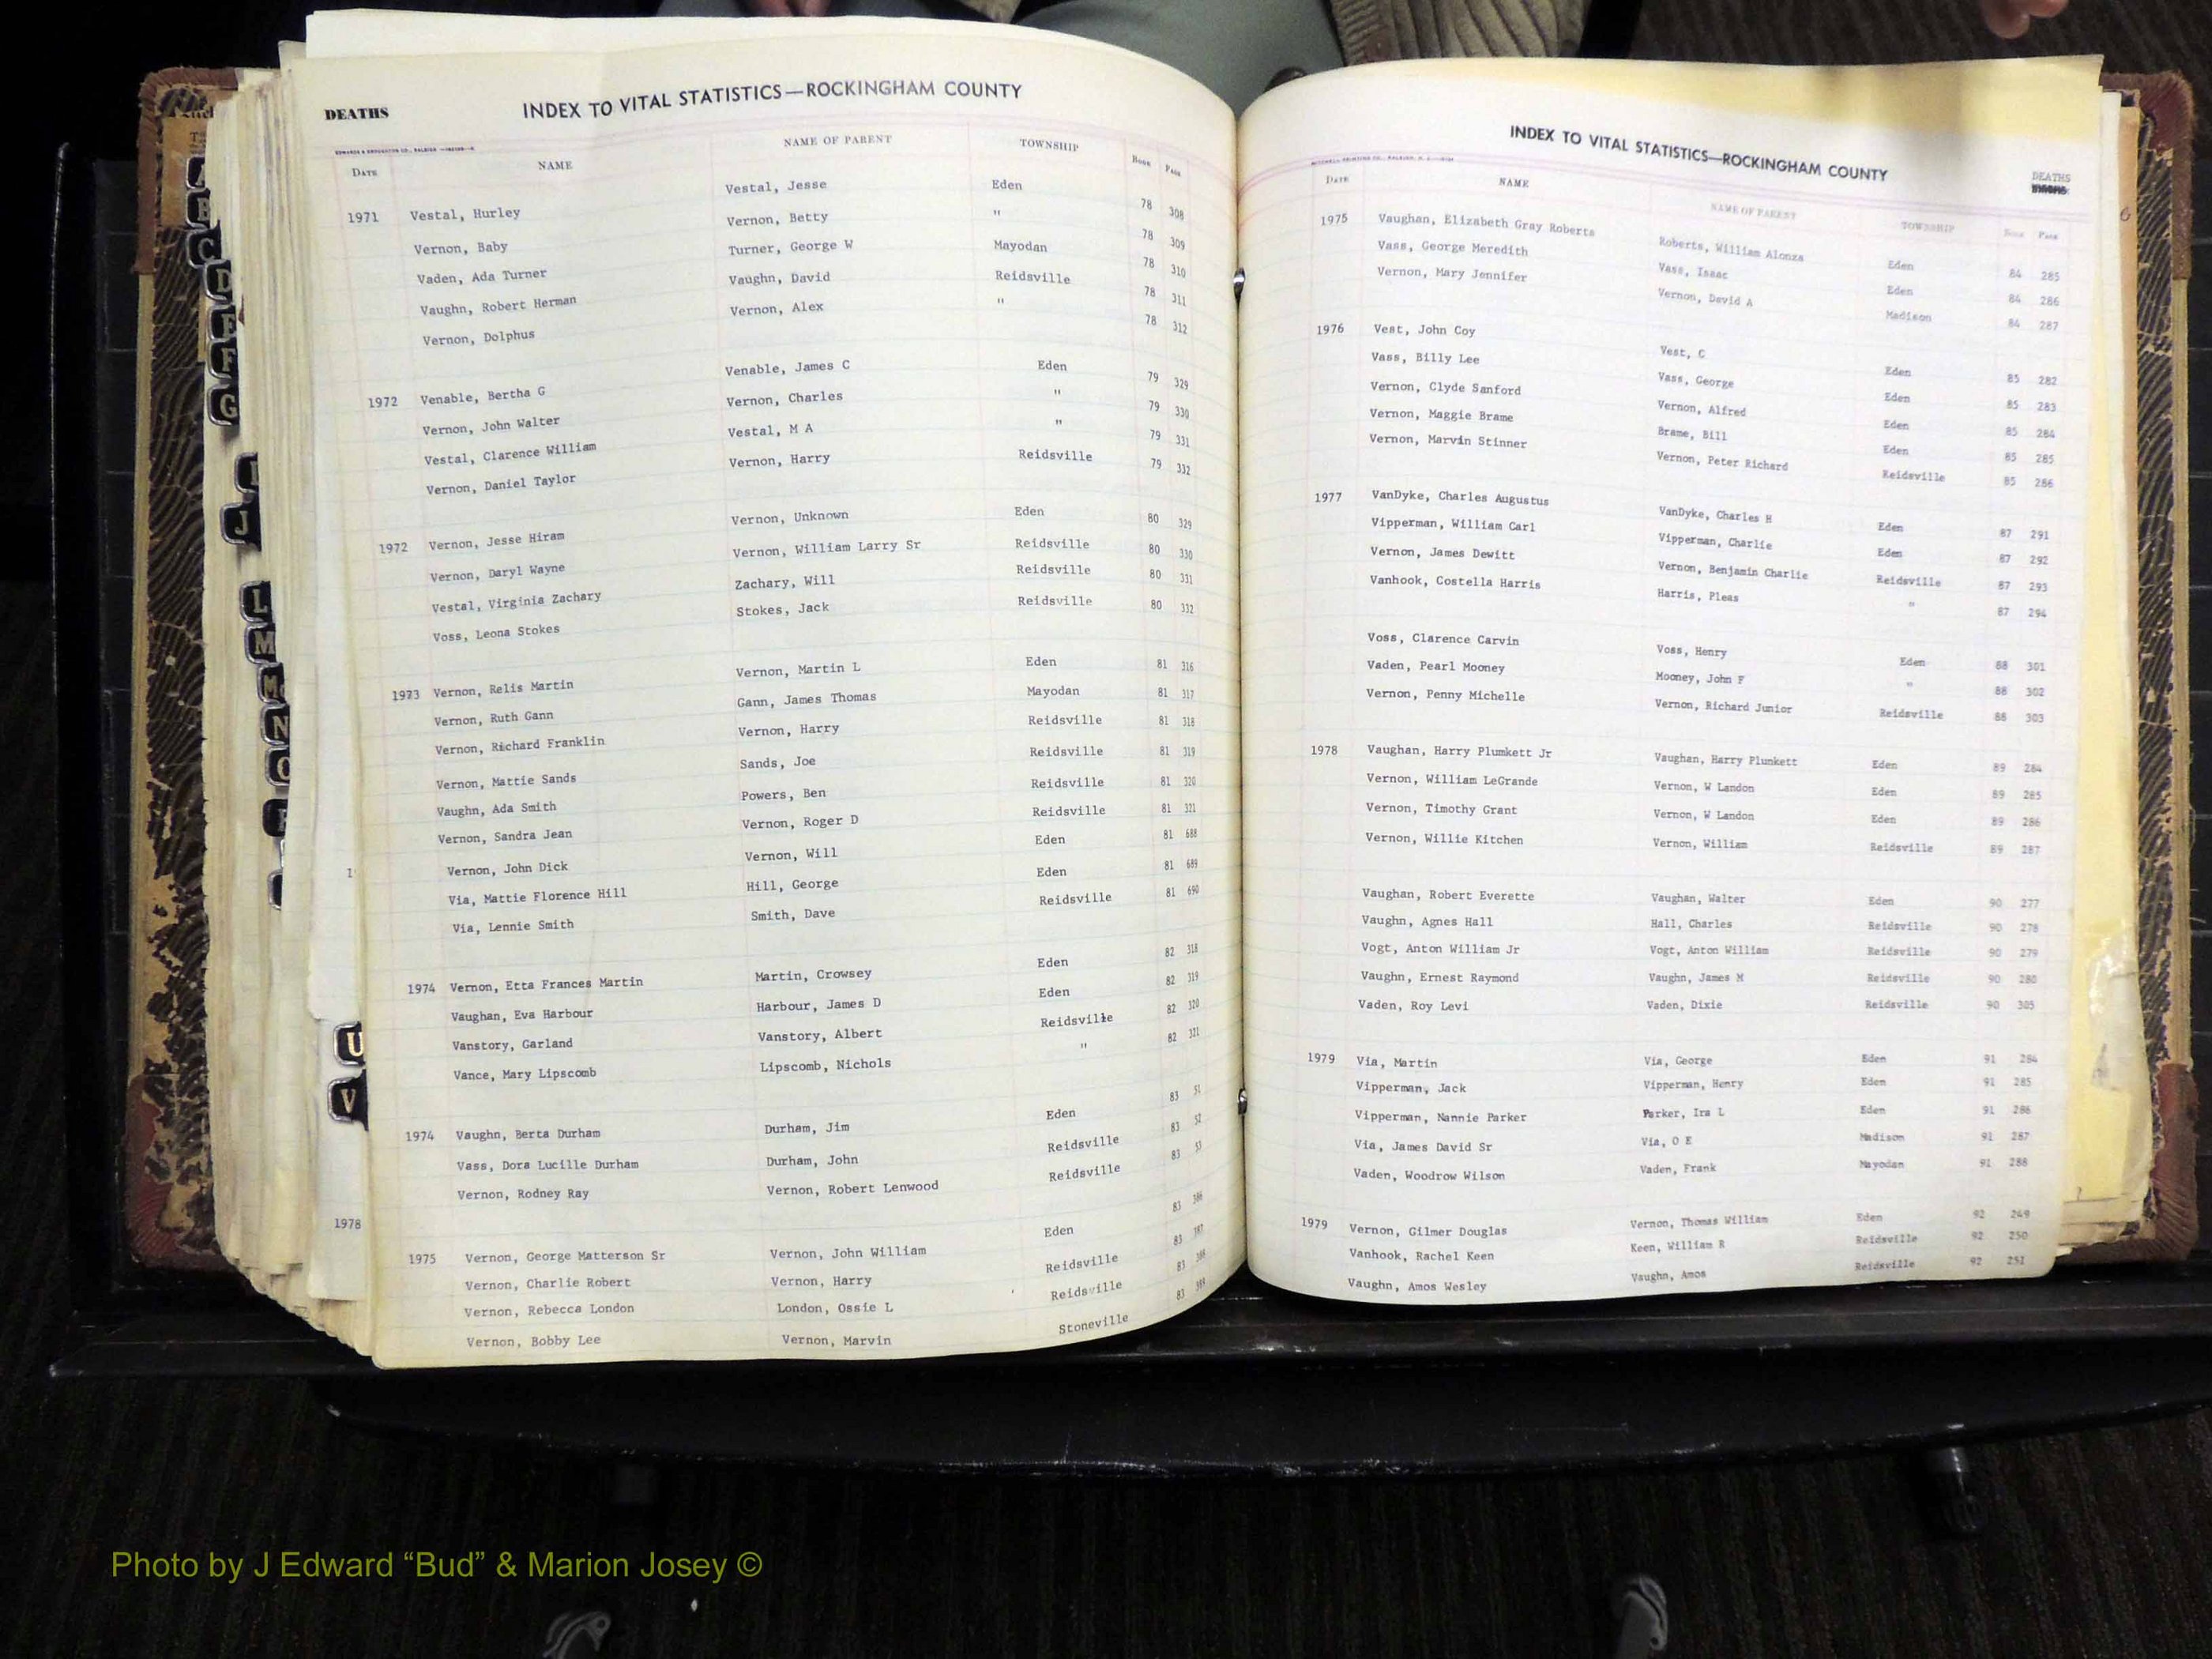 DEATHS
INDEX TO VITAL STATISTICS—ROCKINGHAM COUNTY
DATE NAME NAME OF PARENT TOWNSHIP BOOK PAGE
1971 Vestal, Hurley Vestal, Jesse Eden 78 308
Vernon, Baby Vernon, Betty " 78 309
Vaden, Ada Turner Turner, George W Mayodan 78 310
Vaughn, Robert Herman Vaughn, David Reidsville 78 311
Vernon, Dolphus Vernon, Alex " 78 312
1972 Venable, Bertha G Venable, James C Eden 79 329
Vernon, John Walter Vernon, Charles " 79 330
Vestal, Clarence William Vestal, M A " 79 331
Vernon, Daniel Taylor Vernon, Harry Reidsville 79 332
1972 Vernon, Jesse Hiram Vernon, Unknown Eden 80 329
Vernon, Daryl Wayne Vernon, William Larry Sr Reidsville 80 330
Vestal, Virginia Zachary Zachary, Will Reidsville 80 331
Voss, Leona Stokes Stokes, Jack Reidsville 80 332
1973 Vernon, Relis Martin Vernon, Martin L Eden 81 316
Vernon, Ruth Gann Gann, James Thomas Mayodan 81 317
Vernon, Richard Franklin Vernon, Harry Reidsville 81 318
Vernon, Mattie Sands Sands, Joe Reidsville 81 319
Vaughn, Ada Smith Powers, Ben Reidsville 81 320
Vernon, Sandra Jean Vernon, Roger D Reidsville 81 321
Vernon, John Dick Vernon, Will Eden 81 688
Via, Mattie Florence Hill Hill, George Eden 81 689
Via, Lennie Smith Smith, Dave Reidsville 81 690
1974 Vernon, Etta Frances Martin Martin, Crowsey Eden 82 318
Vaughan, Eva Harbour Harbour, James D Eden 82 319
Vanstory, Garland Vanstory, Albert Reidsville 82 320
Vance, Mary Lipscomb Lipscomb, Nichols " 82 321
1974 Vaughn, Berta Durham Durham, Jim Eden 83 51
Vass, Dora Lucille Durham Durham, John Reidsville 83 52
Vernon, Rodney Ray Vernon, Robert Lenwood Reidsville 83 53
1978
1975 Vernon, George Matterson Sr Vernon, John William Eden 83 386
Vernon, Charlie Robert Vernon, Harry Reidsville 83 387
Vernon, Rebecca London London, Ossie L Reidsville 83 388
Vernon, Bobby Lee Vernon, Marvin Stoneville 83 389
INDEX TO VITAL STATISTICS—ROCKINGHAM COUNTY
DEATHS
DATE NAME NAME OF PARENT TOWNSHIP BOOK PAGE
1975 Vaughan, Elizabeth Gray Roberts Roberts, William Alonza Eden 84 285
Vass, George Meredith Vass, Isaac Eden 84 286
Vernon, Mary Jennifer Vernon, David A Madison 84 287
1976 Vest, John Coy Vest, C Eden 85 282
Vass, Billy Lee Vass, George Eden 85 283
Vernon, Clyde Sanford Vernon, Alfred Eden 85 284
Vernon, Maggie Brame Brame, Bill Eden 85 285
Vernon, Marvin Stinner Vernon, Peter Richard Reidsville 85 286
1977 VanDyke, Charles Augustus VanDyke, Charles H Eden 87 291
Vipperman, William Carl Vipperman, Charlie Eden 87 292
Vernon, James Dewitt Vernon, Benjamin Charlie Reidsville 87 293
Vanhook, Costella Harris Harris, Pleas " 87 294
Voss, Clarence Carvin Voss, Henry Eden 88 301
Vaden, Pearl Mooney Mooney, John F " 88 302
Vernon, Penny Michelle Vernon, Richard Junior Reidsville 88 303
1978 Vaughan, Harry Plumkett Jr Vaughan, Harry Plunkett Eden 89 284
Vernon, William LeGrande Vernon, W Landon Eden 89 285
Vernon, Timothy Grant Vernon, W Landon Eden 89 286
Vernon, Willie Kitchen Vernon, William Reidsville 89 287
Vaughan, Robert Everette Vaughan, Walter Eden 90 277
Vaughn, Agnes Hall Hall, Charles Reidsville 90 278
Vogt, Anton William Jr Vogt, Anton William Reidsville 90 279
Vaughn, Ernest Raymond Vaughn, James M Reidsville 90 280
Vaden, Roy Levi Vaden, Dixie Reidsville 90 305
1979 Via, Martin Via, George Eden 91 284
Vipperman, Jack Vipperman, Henry Eden 91 285
Vipperman, Nannie Parker Parker, Ira L Eden 91 286
Via, James David Sr Via, O E Madison 91 287
Vaden, Woodrow Wilson Vaden, Frank Mayodan 91 288
1979 Vernon, Gilmer Douglas Vernon, Thomas William Eden 92 249
Vanhook, Rachel Keen Keen, William R Reidsville 92 250
Vaughn, Amos Wesley Vaughn, Amos Reidsville 92 251
A
B
C
D
E
F
G
J
L
M
N
O
U
V
Photo by J Edward “Bud” & Marion Josey ©